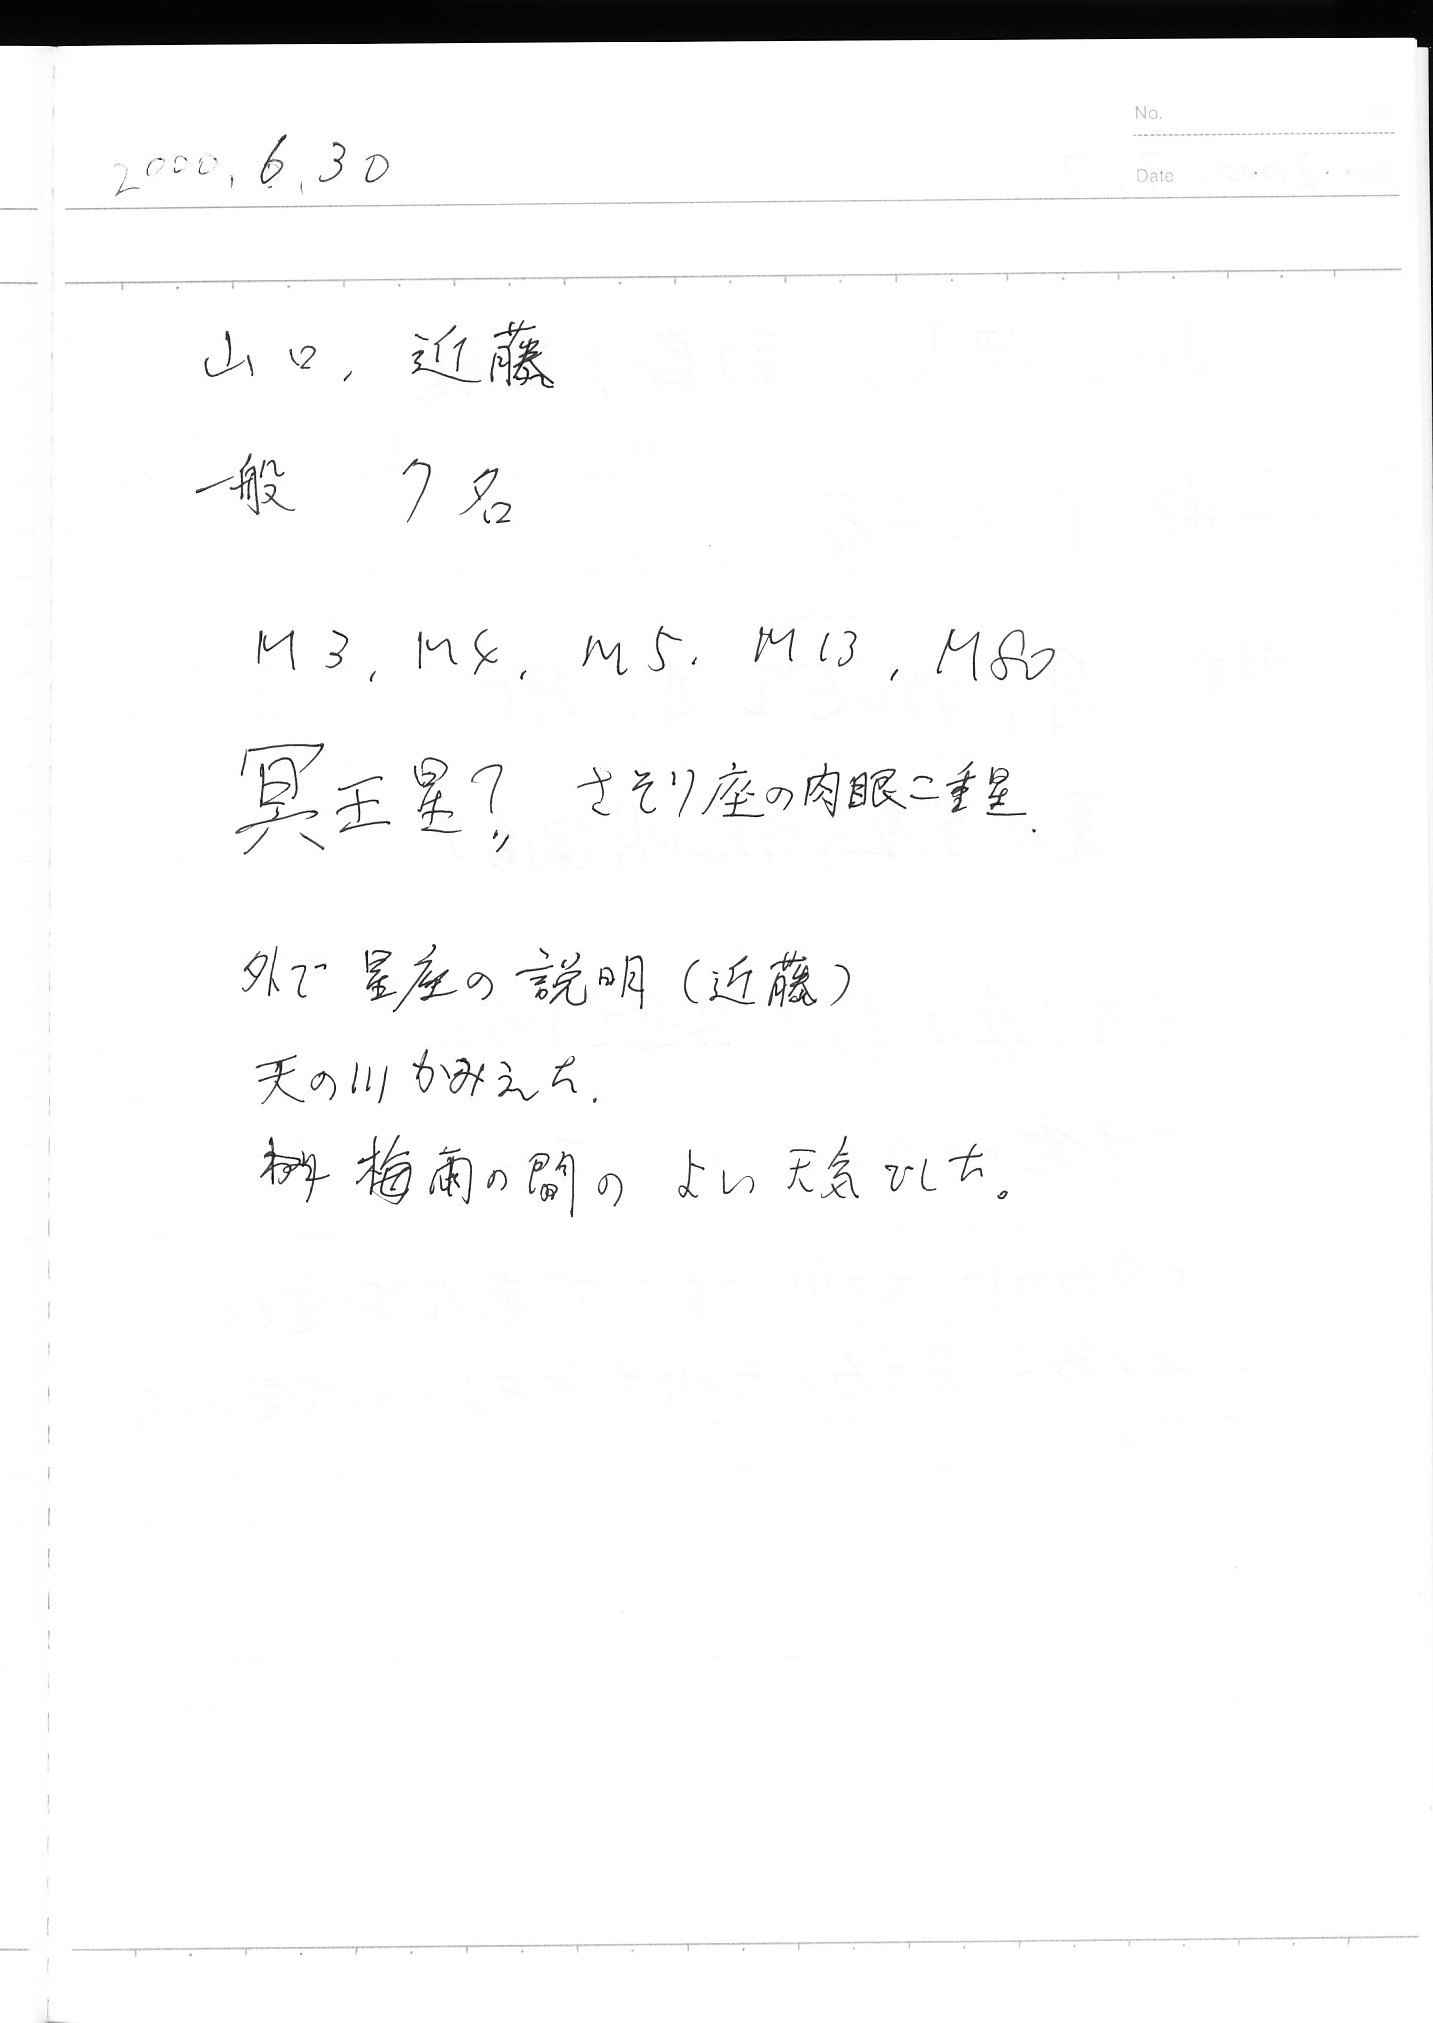 No.
2000.6.30
Date
山口, 近藤
一般 7名
M3, M4, M5, M13, M80
冥王星? さそり座の肉眼二重星.
外で星座の説明(近藤)
天の川がみえた.
梅雨の間の よい天気でした。